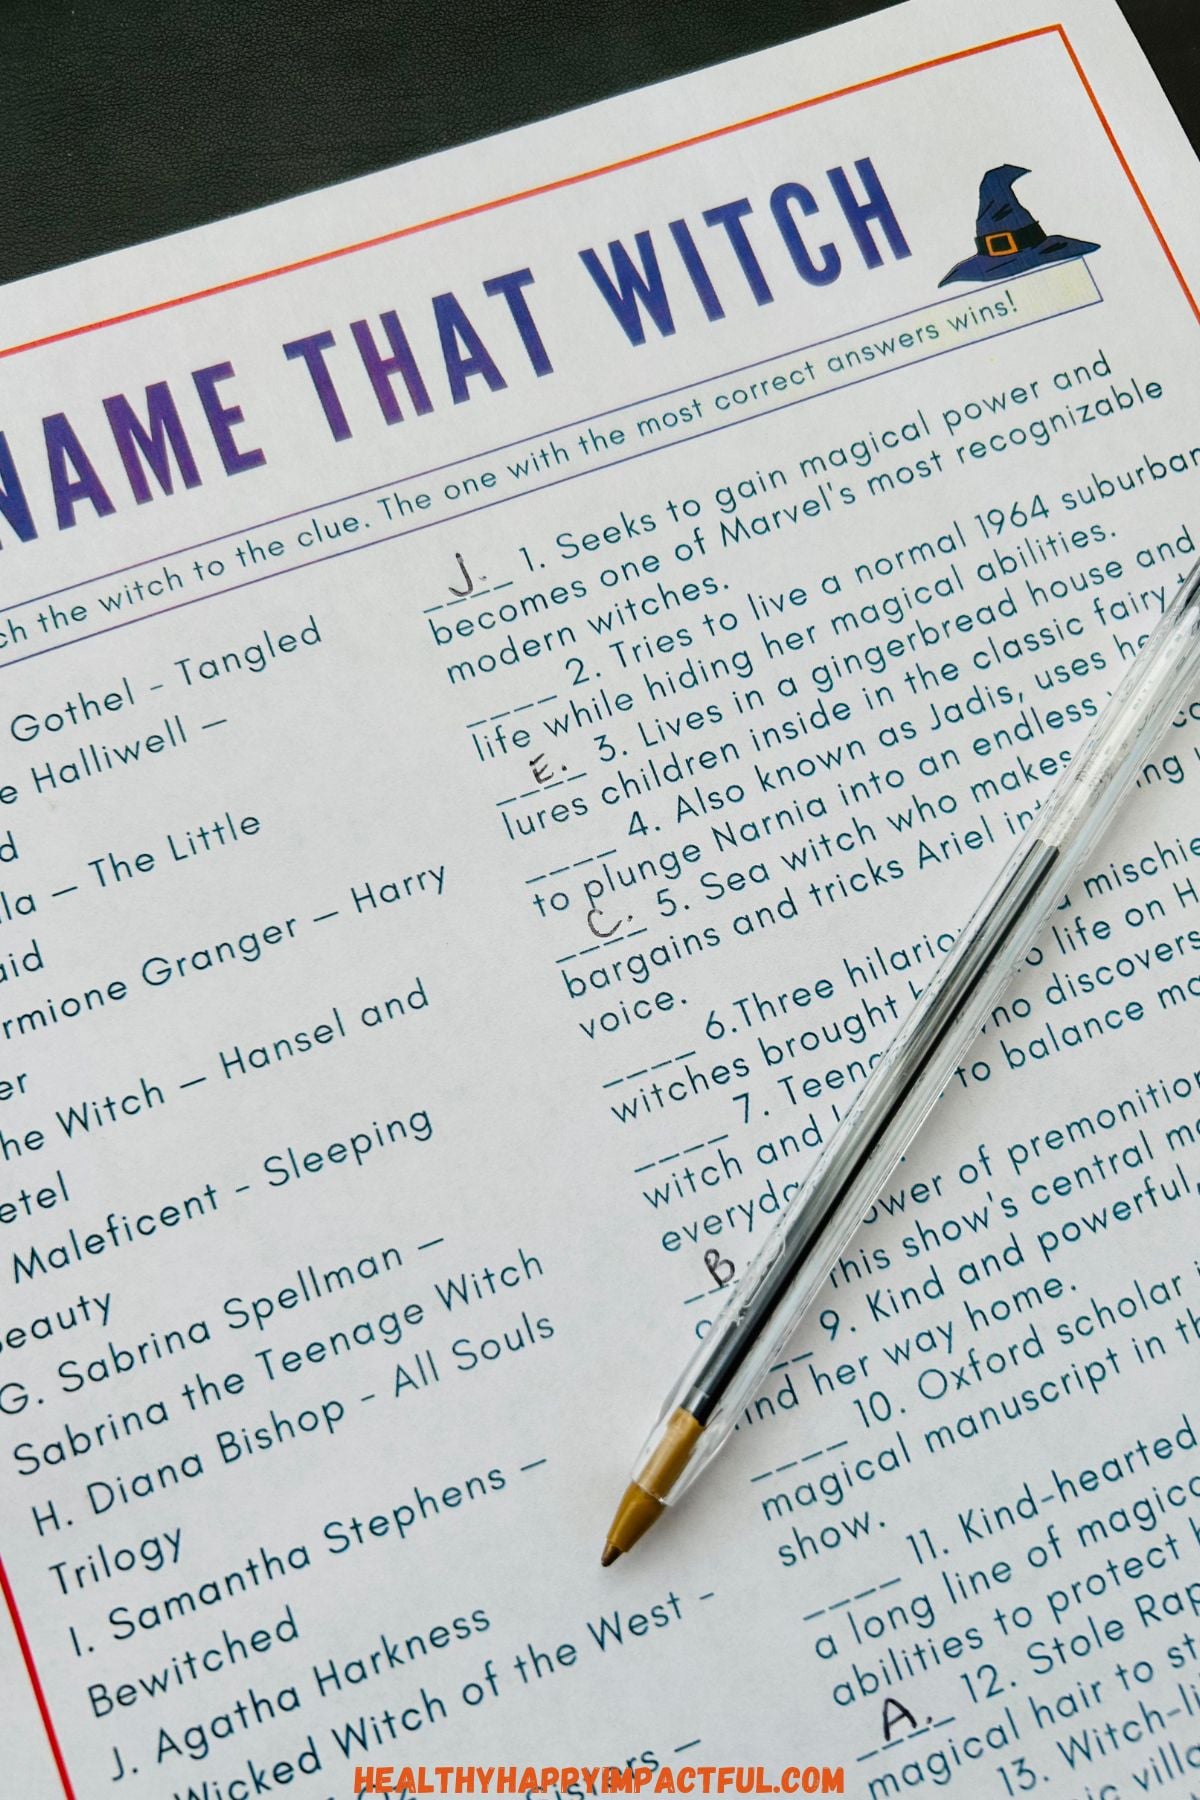 NAME THAT WITCH
the witch to the clue. The one with the most correct answers wins!
Gothel - Tangled
Halliwell –
– The Little
Hermione Granger – Harry
The Witch – Hansel and
Maleficent - Sleeping
Beauty
G. Sabrina Spellman –
Sabrina the Teenage Witch
H. Diana Bishop - All Souls
Trilogy
I. Samantha Stephens –
Bewitched
J. Agatha Harkness
Wicked Witch of the West -
Sisters –
J. 1. Seeks to gain magical power and
becomes one of Marvel's most recognizable
modern witches.
____ 2. Tries to live a normal 1964 suburban
life while hiding her magical abilities.
E. 3. Lives in a gingerbread house and
lures children inside in the classic fairy
____ 4. Also known as Jadis, uses
to plunge Narnia into an endless
C. 5. Sea witch who makes
bargains and tricks Ariel
voice.
____ 6.Three
witches brought life on
____ 7. who discovers
witch and to balance
B. power of premonition
this show's central
9. Kind and powerful,
her way home.
____ 10. Oxford scholar
magical manuscript in
show.
____ 11. Kind-hearted
a long line of
abilities to protect
A. 12. Stole
magical hair to
13.
HEALTHYHAPPYIMPACTFUL.COM